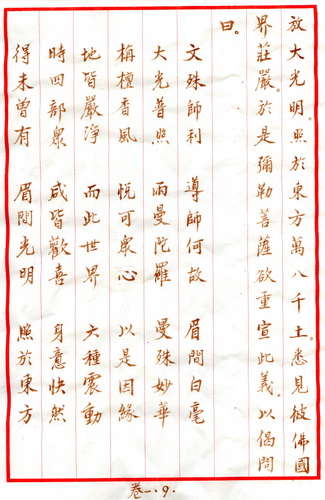 放大光明照於東方萬八千土。悉見彼佛國
界莊嚴。於是彌勒菩薩欲重宣此義。以偈問
曰。
文殊師利 導師何故 眉間白毫
大光普照 雨曼陀羅 曼殊妙華
栴檀香風 悅可眾心 以是因緣
地皆嚴淨 而此世界 大種震動
時四部眾 咸皆歡喜 身意快然
得未曾有 眉間光明 照於東方
卷一.9.